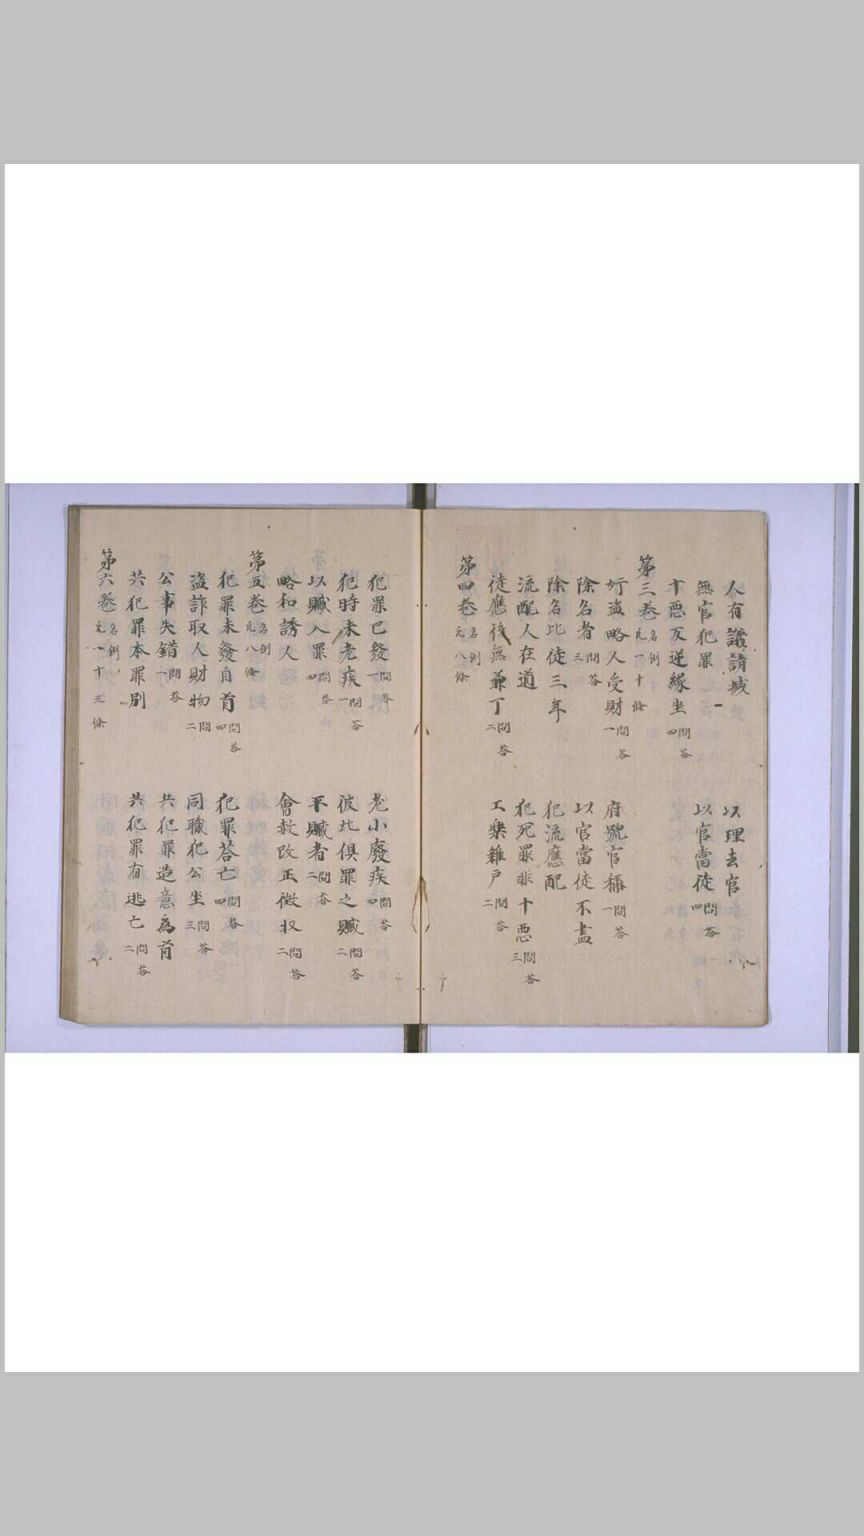 人有議請減　以理去官
無官犯罪　以官當徒四問答
十惡反逆緣坐四問答
第三卷名例凡一十條
奸盜略人受財一問答　府號官稱一問答
除名者三問答　以官當徒不盡
除名比徒三年　犯流應配
流配人在道　犯死罪非十惡三問答
徒應役無兼丁二問答　工樂雜戶二問答
第四卷名例凡八條
犯罪已發一問答　老小廢疾四問答
犯時未老疾一問答　彼此俱罪之贓二問答
以贓入罪四問答　平贓者二問答
略和誘人　會赦改正徵收二問答
第五卷名例凡八條
犯罪未發自首四問答　犯罪荅亡四問答
盜詐取人財物二問　同職犯公坐三問答
公事失錯一問答　共犯罪造意為首
共犯罪本罪別　共犯罪有逃亡二問答
第六卷名例凡一十三條